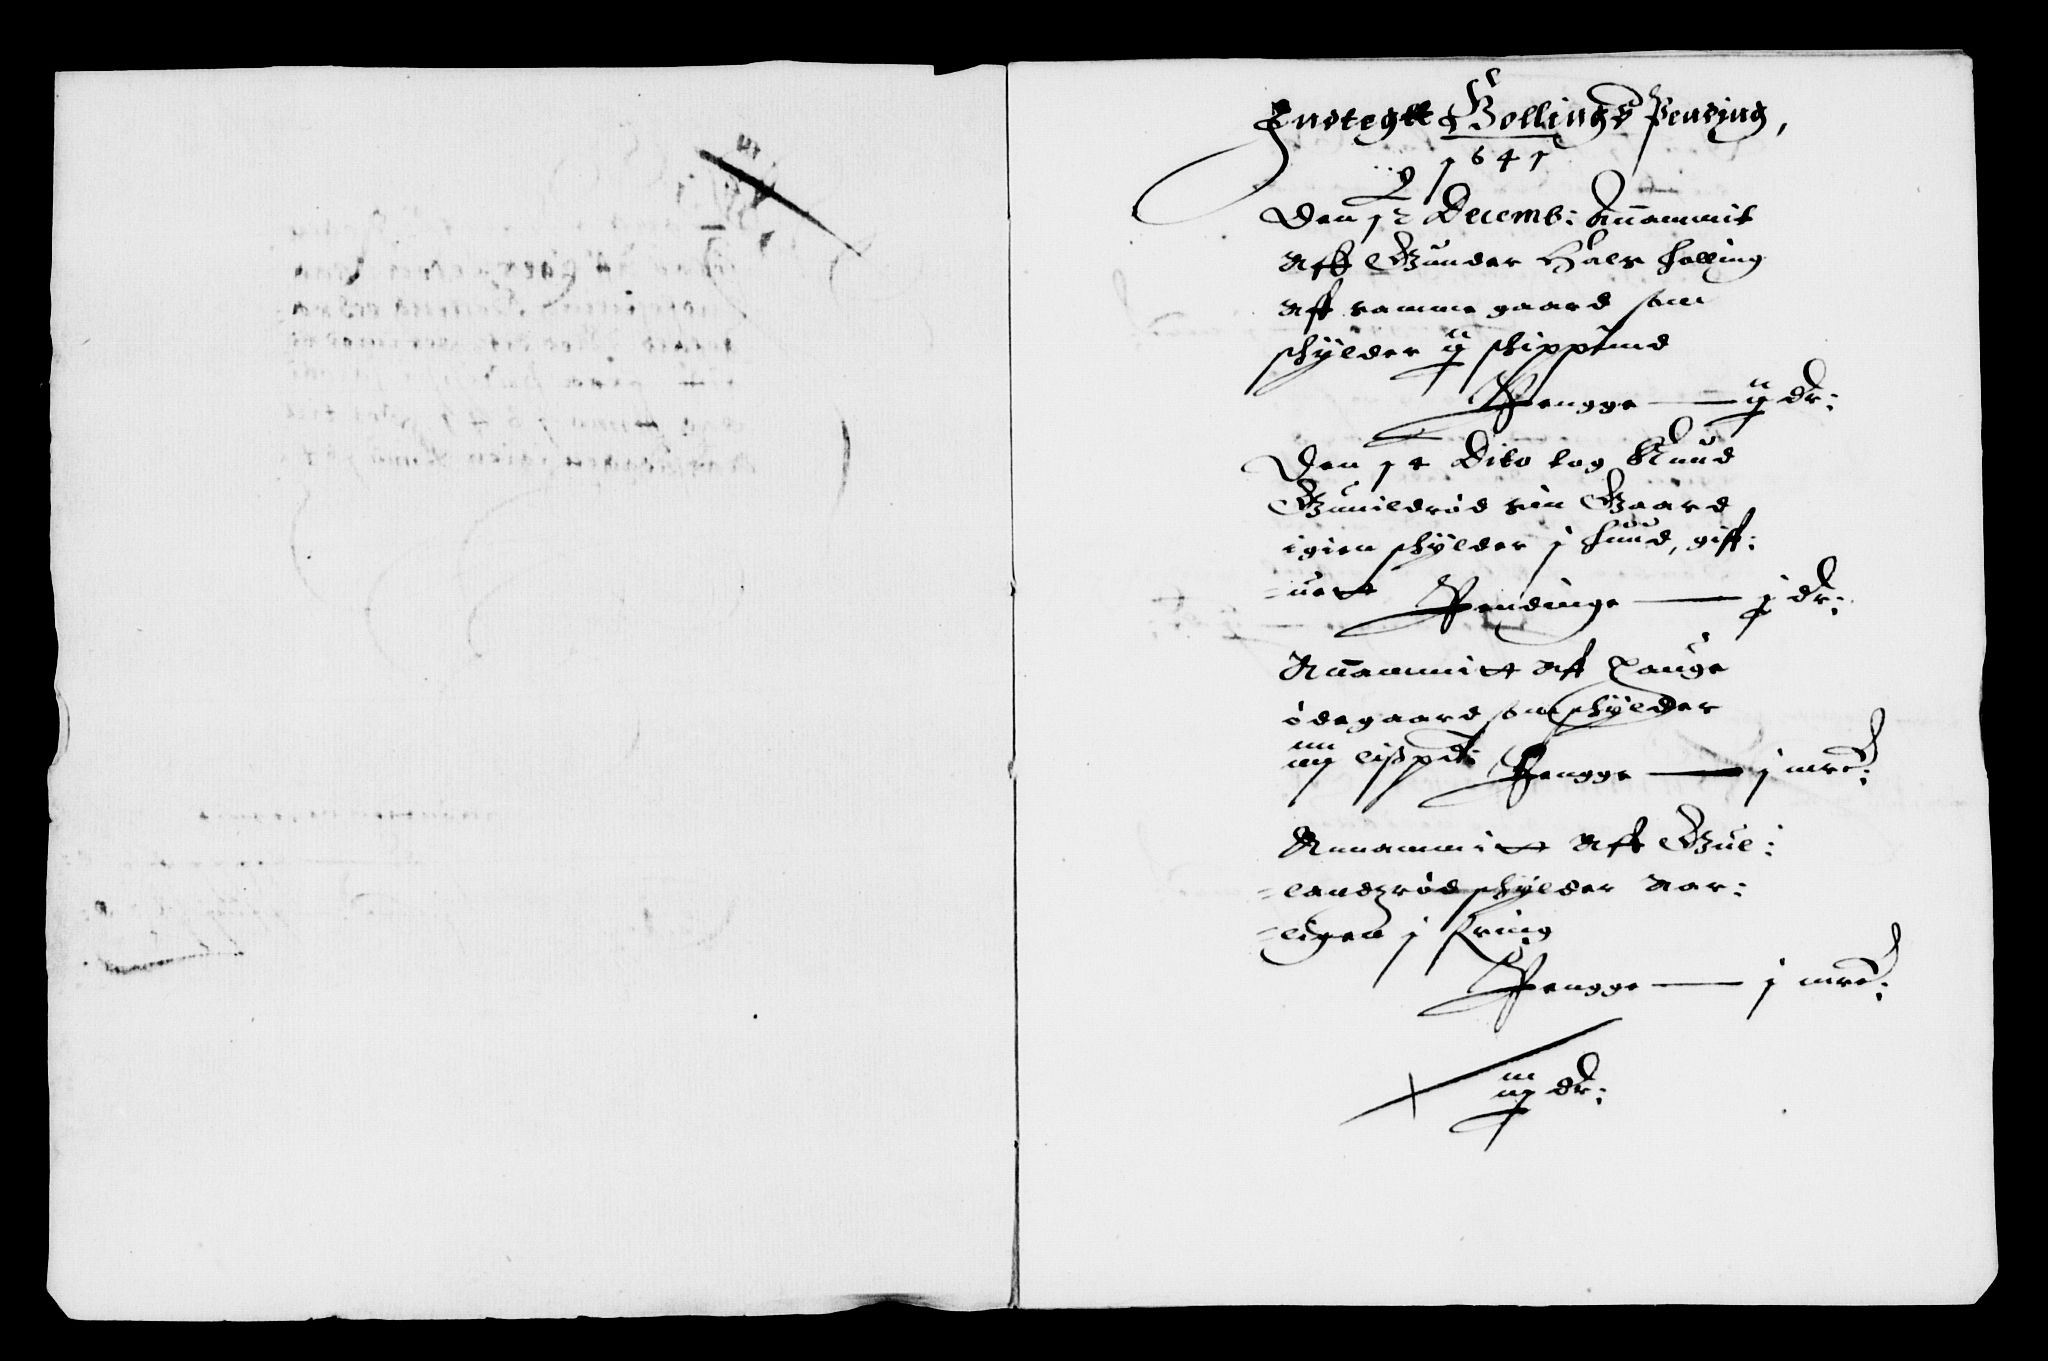 Indtegtt Bøllings Pending,
1641
Den 12 Decemb: Annammit
Aff Gunder Hals følling
Aff samme gaard som
schylder ij schippund
Pengge — ij dr:
Den 14 Dito tog Knud
Gunildrød sin Gaard
igien schylder j hund, giff:
=uett Pendinge — j dr:
Annammitt Aff Hauge
ødegaard som schylder
iiij lißpd: Pengge — j mrc:
Annammitt Aff Gul:
=landzrød schylder Aar:
=ligen j
Pengge — j mrc:
iiij dr: